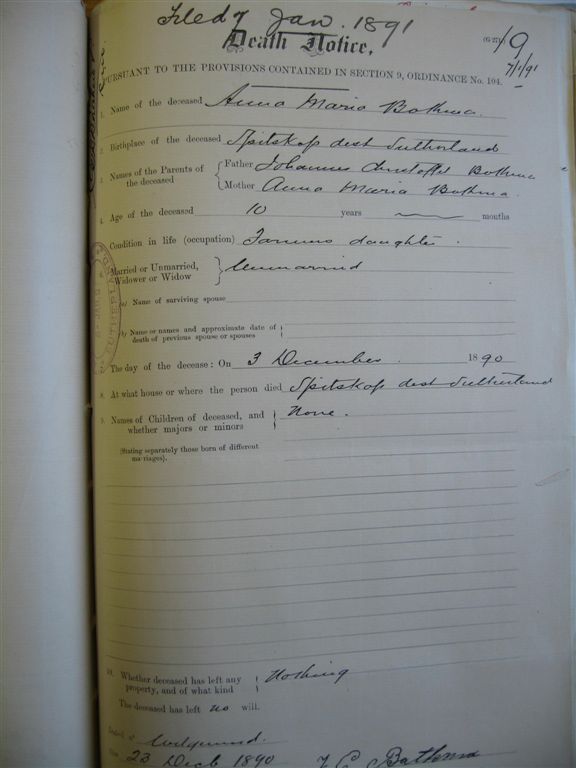 Filed 7 Jan. 1891
Death Notice,
19
7/1/91
PURSUANT TO THE PROVISIONS CONTAINED IN SECTION 9, ORDINANCE No. 104.
1. Name of the deceased Anna Maria Bothma.
2. Birthplace of the deceased Spitskop dist Sutherland
3. Names of the Parents of the deceased { Father Johannes Christoffel Bothma
Mother Anna Maria Bothma.
4. Age of the deceased 10 years months
Condition in life (occupation) Farmers daughter.
Married or Unmarried, Widower or Widow } Unmarried
(a) Name of surviving spouse
(b) Name or names and approximate date of death of previous spouse or spouses
The day of the decease: On 3 December. 1890
8. At what house or where the person died Spitskop dist Sutherland
9. Names of Children of deceased, and whether majors or minors } None.
(Stating separately those born of different marriages).
10. Whether deceased has left any property, and of what kind } Nothing
The deceased has left no will.
Dated at
the 23 Decb 1890 Bothma